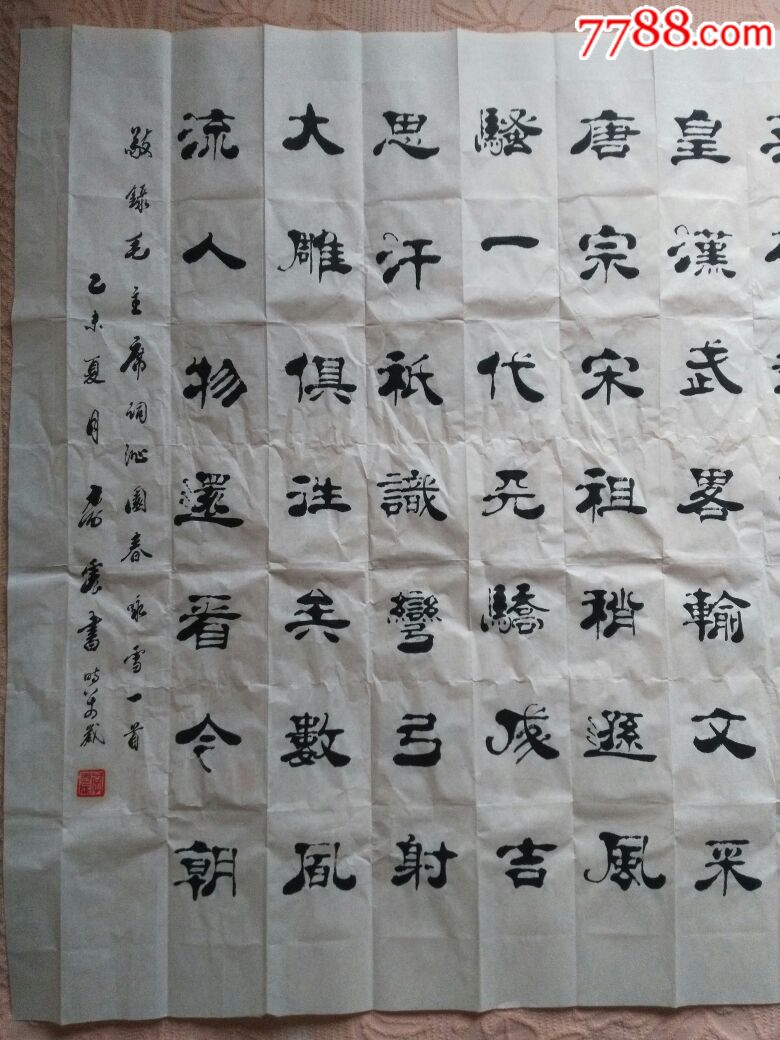 7788.com
皇漢武畧輸文采
唐宗宋祖稍遜風
騷一代天驕成吉
思汗祇識彎弓射
大雕俱往矣數凬
流人物還看今朝
敬錄毛主席詞沁園春咏雪一首
乙未夏月震書時歲